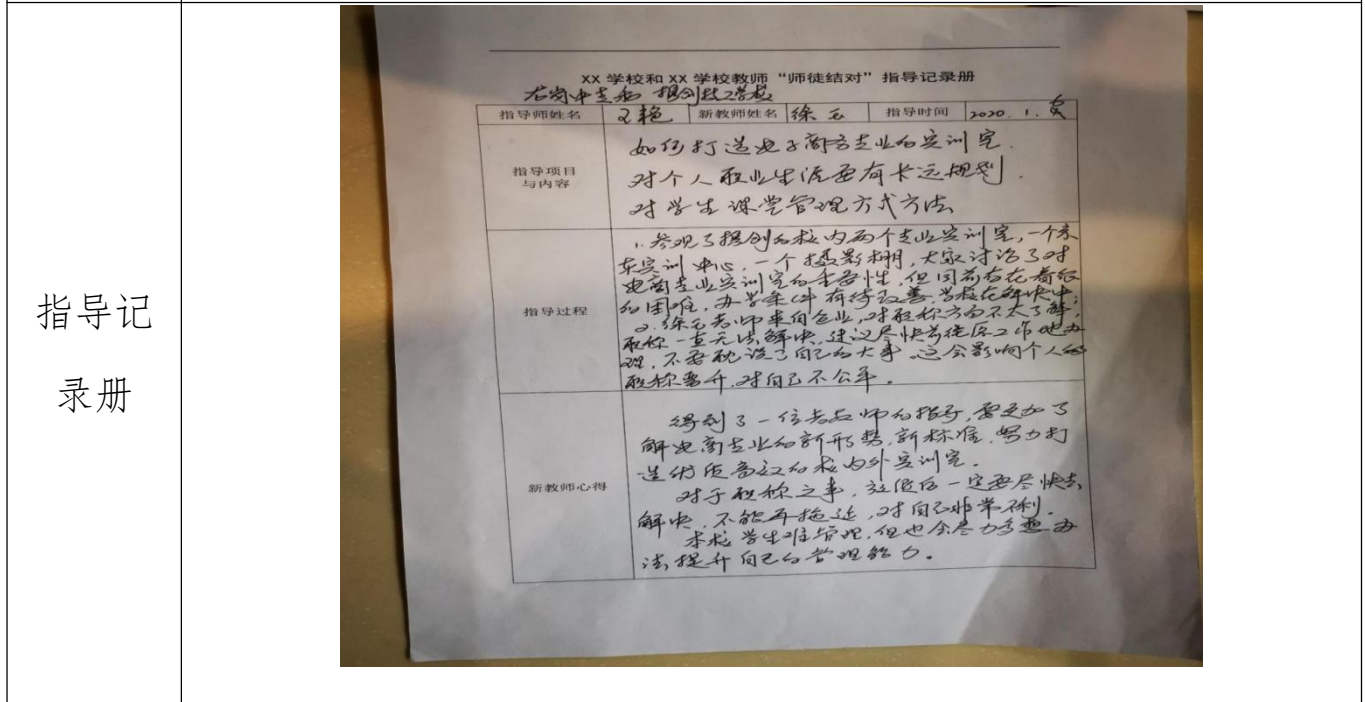 指导记
录册
XX 学校和 XX 学校教师“师徒结对”指导记录册
指导师姓名 王艳 新教师姓名 徐云 指导时间 2020.1.
指导项目
与内容
如何打造电子商务专业的实训室.
对个人职业生涯要有长远规划.
对学生课堂管理方式方法
指导过程
1.参观了提创的校内两个专业实训室,一个京
东实训中心,一个摄影棚,大家讨论了对
电商专业实训室的重要性,但目前存在着很
的困难,办学条件有待改善,学校在解决中;
2.徐云老师来自企业,对职称方面不太了解,
职称一直无法解决,建议尽快前往原工作地办
理,不要耽误了自己的大事。这会影响个人的
职称晋升,对自己不公平。
新教师心得
得到了一位老教师的指导,要更加了
解电商专业的新形势,新标准,努力打
造优质高效的校内外实训室.
对于职称之事,放假后一定要尽快去
解决,不能再拖延,对自己非常不利.
本校学生难管理,但也会尽力多想办
法提升自己的管理能力。